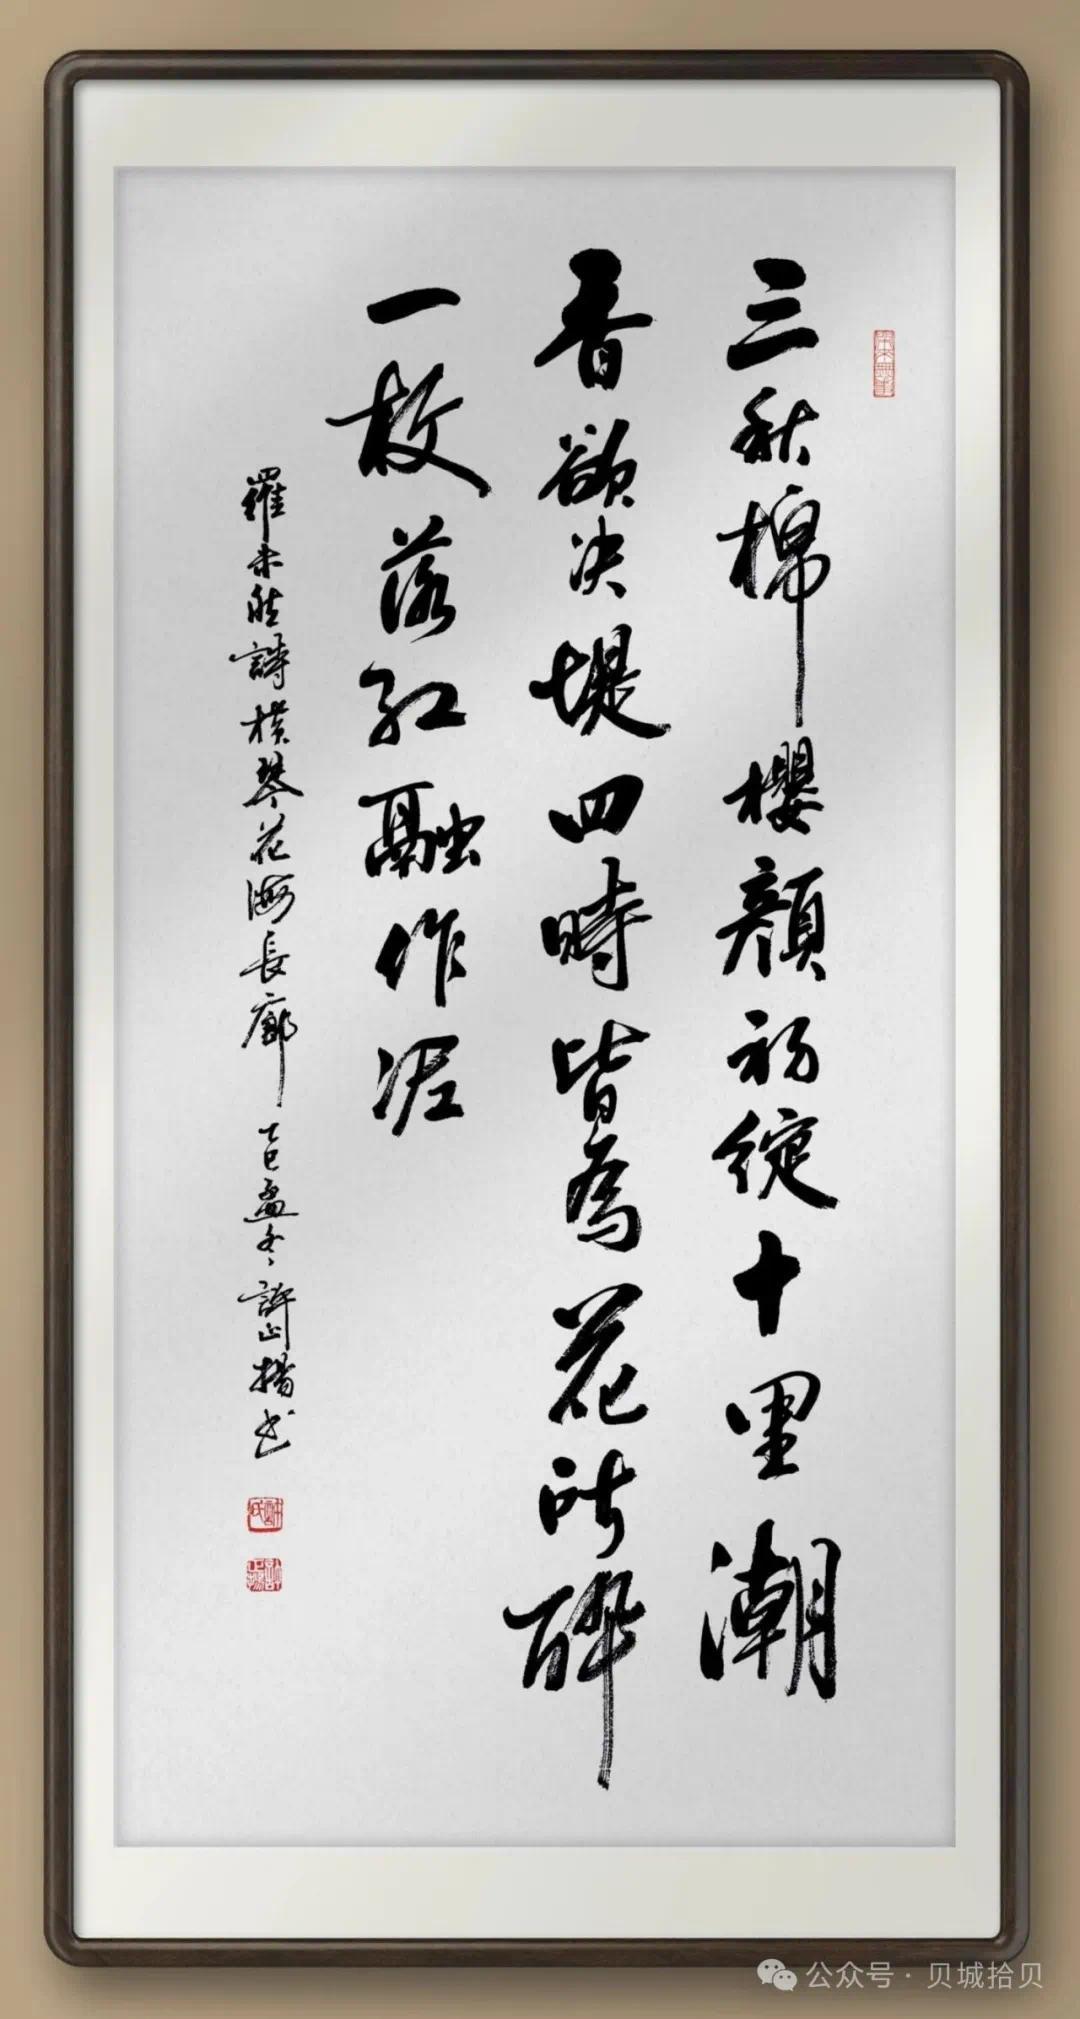 三秋棉櫻顏初綻十里潮
香欲決堤四時皆為花所醉
一枚落紅融作泥
羅未然詩橫琴花海長廊 乙巳孟冬許山揚書
公众号 · 贝城拾贝